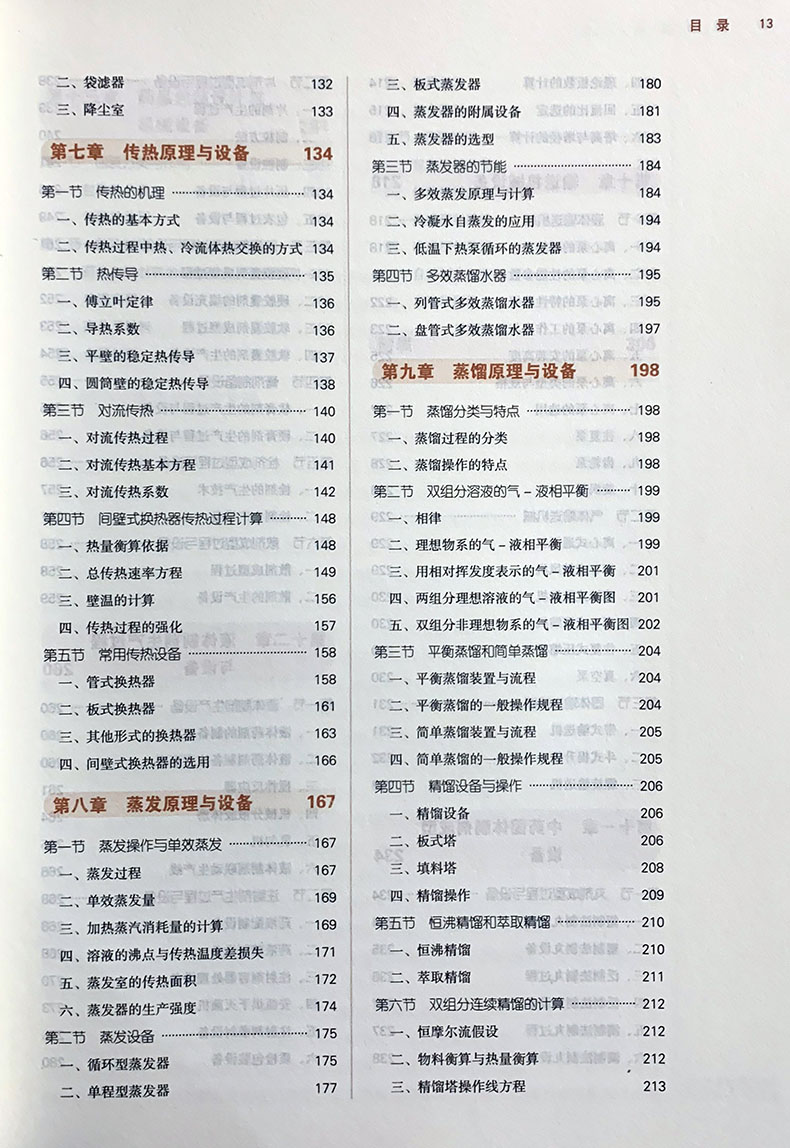 目 录 13
二、袋滤器 132
三、降尘室 133
第七章 传热原理与设备 134
第一节 传热的机理 134
一、传热的基本方式 134
二、传热过程中热、冷流体热交换的方式 134
第二节 热传导 135
一、傅立叶定律 136
二、导热系数 136
三、平壁的稳定热传导 137
四、圆筒壁的稳定热传导 138
第三节 对流传热 140
一、对流传热过程 140
二、对流传热基本方程 141
三、对流传热系数 142
第四节 间壁式换热器传热过程计算 148
一、热量衡算依据 148
二、总传热速率方程 149
三、壁温的计算 156
四、传热过程的强化 157
第五节 常用传热设备 158
一、管式换热器 158
二、板式换热器 161
三、其他形式的换热器 163
四、间壁式换热器的选用 166
第八章 蒸发原理与设备 167
第一节 蒸发操作与单效蒸发 167
一、蒸发过程 167
二、单效蒸发量 169
三、加热蒸汽消耗量的计算 169
四、溶液的沸点与传热温度差损失 171
五、蒸发室的传热面积 172
六、蒸发器的生产强度 174
第二节 蒸发设备 175
一、循环型蒸发器 175
二、单程型蒸发器 177
三、板式蒸发器 180
四、蒸发器的附属设备 181
五、蒸发器的选型 183
第三节 蒸发器的节能 184
一、多效蒸发原理与计算 184
二、冷凝水自蒸发的应用 194
三、低温下热泵循环的蒸发器 194
第四节 多效蒸馏水器 195
一、列管式多效蒸馏水器 195
二、盘管式多效蒸馏水器 197
第九章 蒸馏原理与设备 198
第一节 蒸馏分类与特点 198
一、蒸馏过程的分类 198
二、蒸馏操作的特点 198
第二节 双组分溶液的气－液相平衡 199
一、相律 199
二、理想物系的气－液相平衡 199
三、用相对挥发度表示的气－液相平衡 201
四、两组分理想溶液的气－液相平衡图 201
五、双组分非理想物系的气－液相平衡图 202
第三节 平衡蒸馏和简单蒸馏 204
一、平衡蒸馏装置与流程 204
二、平衡蒸馏的一般操作规程 204
三、简单蒸馏装置与流程 205
四、简单蒸馏的一般操作规程 205
第四节 精馏设备与操作 206
一、精馏设备 206
二、板式塔 206
三、填料塔 208
四、精馏操作 209
第五节 恒沸精馏和萃取精馏 210
一、恒沸精馏 210
二、萃取精馏 211
第六节 双组分连续精馏的计算 212
一、恒摩尔流假设 212
二、物料衡算与热量衡算 212
三、精馏塔操作线方程 213